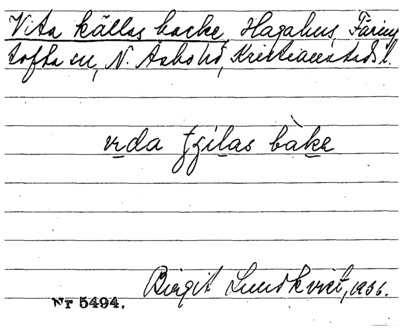 Vita källas backe, Hagahus, Färing
tofta sn, N. Åsbo hd, Kristianstads l.
vida tjilas bàke
Birgit Lundkvist, 1936.
Nr 5494.